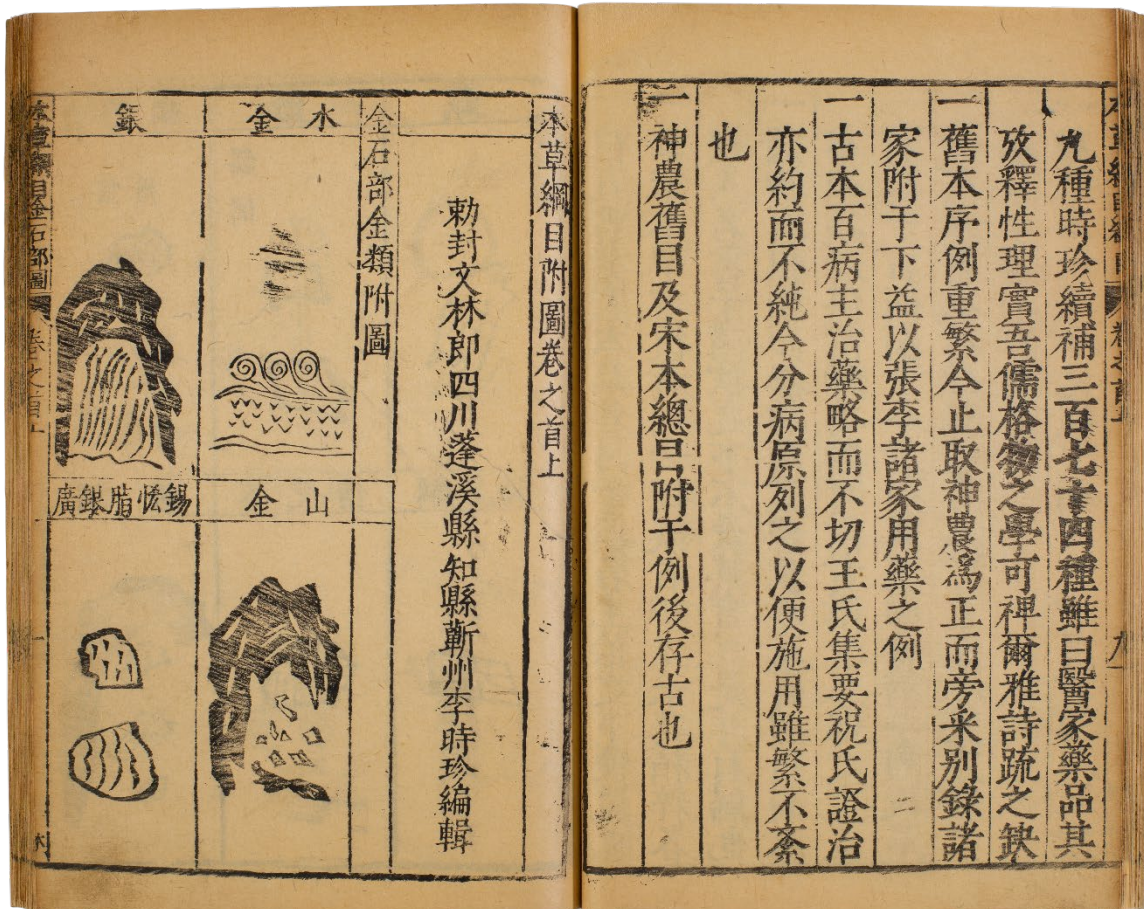 九種時珍續補三百七十四種雖曰醫家藥品其
攷釋性理實吾儒格物之學可裨爾雅詩疏之缺
一舊本序例重繁今止取神農爲正而旁采别錄諸
家附于下益以張李諸家用藥之例
一古本百病主治藥略而不切王氏集要祝氏證治
亦約而不純今分病原列之以便施用雖繁不紊
也
一神農舊目及宋本總目附于例後存古也
本草綱目附圖卷之首上
勅封文林郎四川蓬溪縣知縣蘄州李時珍編輯
金石部金類附圖
水金
山金
銀
錫恡脂銀廣
本草綱目金石部圖 卷之首上 一